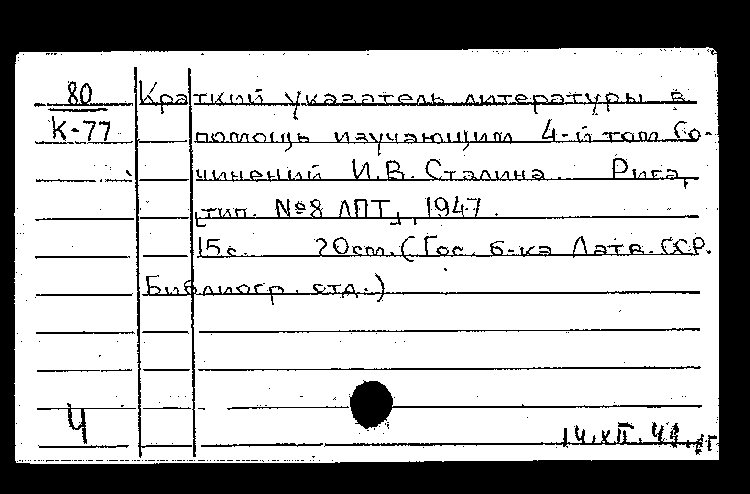 80
К-77
Краткий указатель литературы в
помощь изучающим 4-й том Со-
чинений И.В. Сталина. Рига,
[тип. №8 ЛПТ], 1947.
15 с. 20 см. (Гос. б-ка Латв. ССР.
Библиогр. отд.)
Ч
14.XII.49.